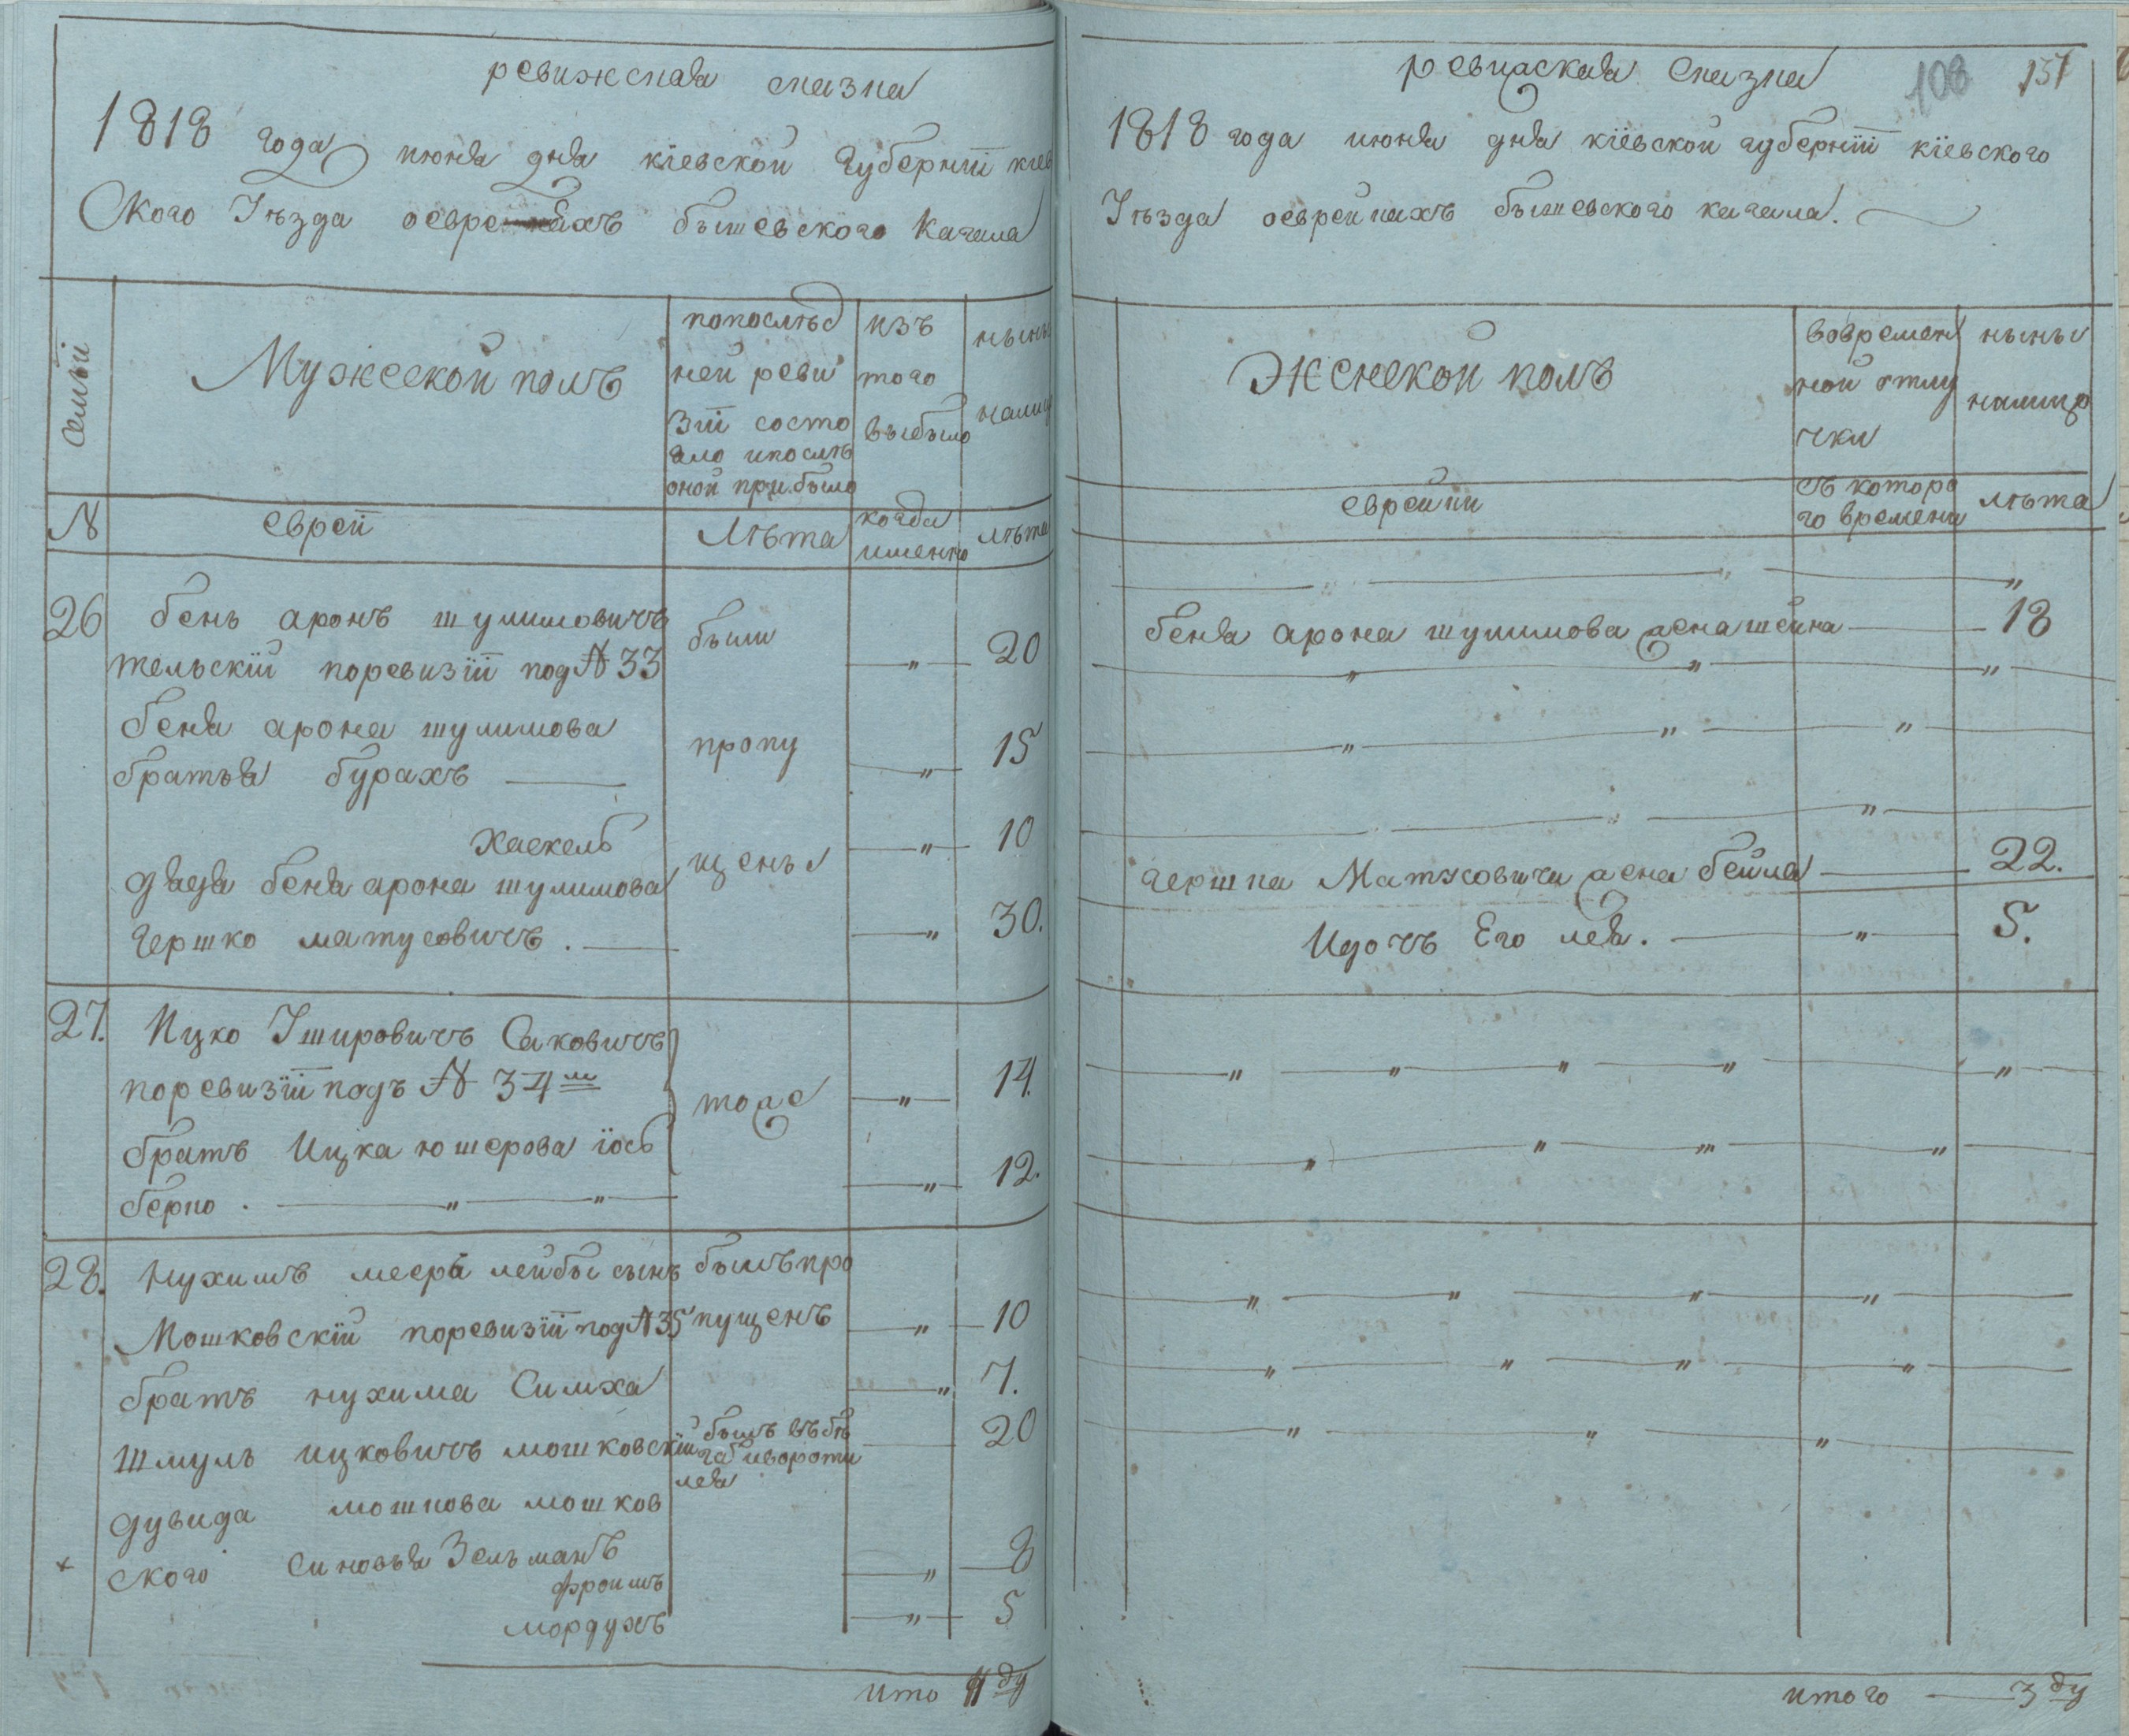 ревижская сказка
1818 года июня дня кіевской губерніи кіев
ского Іѣзда оевреяхъ бышевского Кагала
семьи
Мужеской полъ
попослѣд
ней реви
зіи состо
яло ипослѣ
оной прибыло
изъ
того
выбыло
нынѣ
налицо
N
евреи
Лѣта
когда
именно
лѣта
26
бень аронъ шулимовичъ
тельскіи поревизіи под N 33
были
20
беня арона шулимова
братья бурахъ
пропу
15
хаскель
щены
10
дядя беня арона шулимова
гершко матусовичъ.
30.
27.
Ицко Ішировичъ Саковичъ
поревизіи подъ N 34м
тоже
14.
братъ Ицка юшерова іось
берко.
12.
28.
Нухимъ меера лейбы сынъ
былъ про
Мошковскій поревизіи под N 35
пущенъ
10
братъ нухима Симха
7.
шмуль ицковичъ мошковскій
былъ въбѣ
гаивороти
лся
20
дувида мошкова мошков
ского синовья Зельманъ
8
фроимъ
мордухъ
5
итого 11 ду
ревижская Сказка
108
151
1818 года июня дня кіевской губерніи кіевского
Іѣзда оеврейкахъ бышевского кагала.
Женской полъ
вовремен
ной отлу
чки
нынѣ
налицо
еврейки
съ которо
го времени
лѣта
беня арона шулимова жена шейна
18
гершка Матусовичи жена бейла
22.
Идочъ Его лея.
5.
итого 3 ду